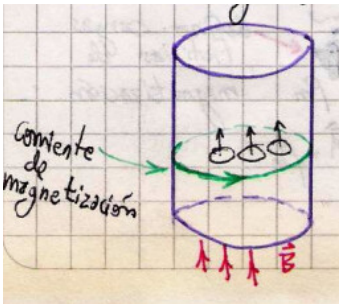 Corriente
de
magnetización
B